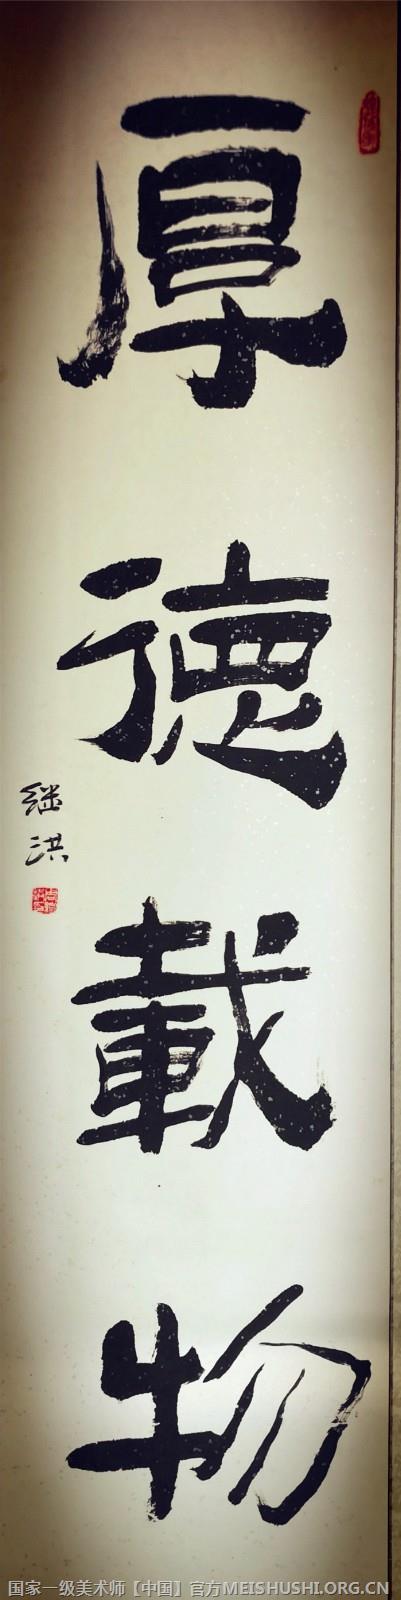 厚德載物
继洪
国家一级美术师【中国】官方MEISHUSHI.ORG.CN